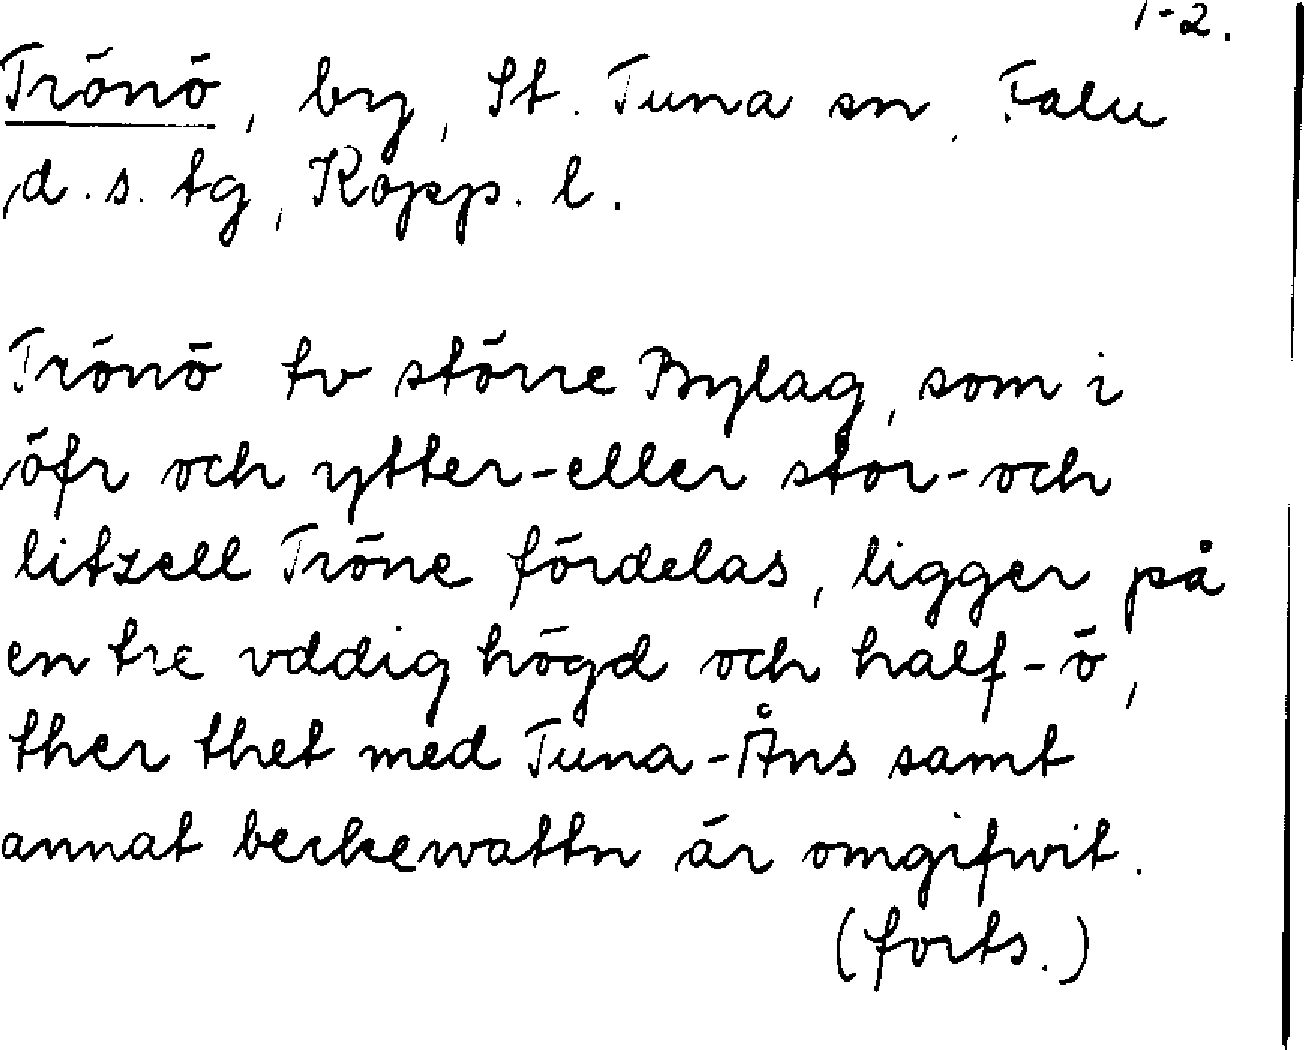 1-2.
Trönö, by, St. Tuna sn, Falu
d.s. tg, Kopp. l.
Trönö tv större Bylag, som i
öfr och ytter-eller stor-och
litzell Tröne fördelas, ligger på
en tre vddig högd och half-ö,
ther thet med Tuna-Åns samt
annat beckewattn är omgifwit.
(forts.)